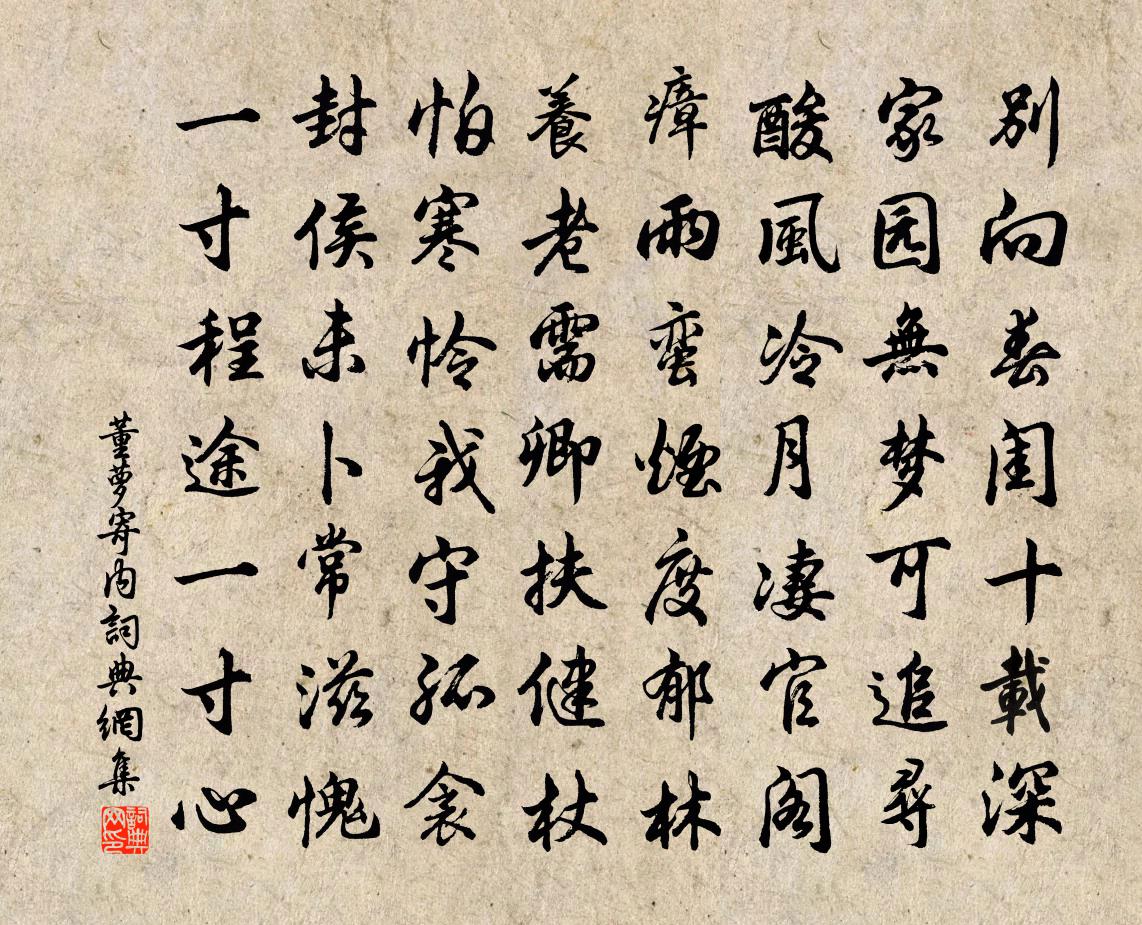 别向春闺十載深
家园無梦可追尋
酸風冷月凄官阁
瘴雨蛮煙度郁林
養老需卿扶健杖
怕寒怜我守孤衾
封侯未卜常滋愧
一寸程途一寸心
董萝寄内詞典網集
詞典网印